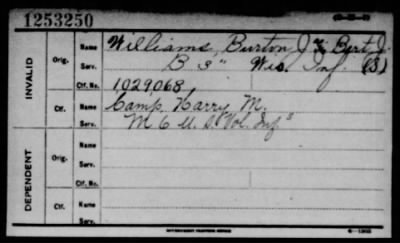 1253250
INVALID
Orig.
Name Williams, Burton J & Bert J.
Serv. B 3" Wis. Inf. (S)
Ctf. No. 1029,068
Ctf.
Name Camp, Harry M.
Serv. M 6 U.S. Vol. Inf
DEPENDENT
Orig.
Name
Serv.
Ctf. No.
Ctf.
Name
Serv.